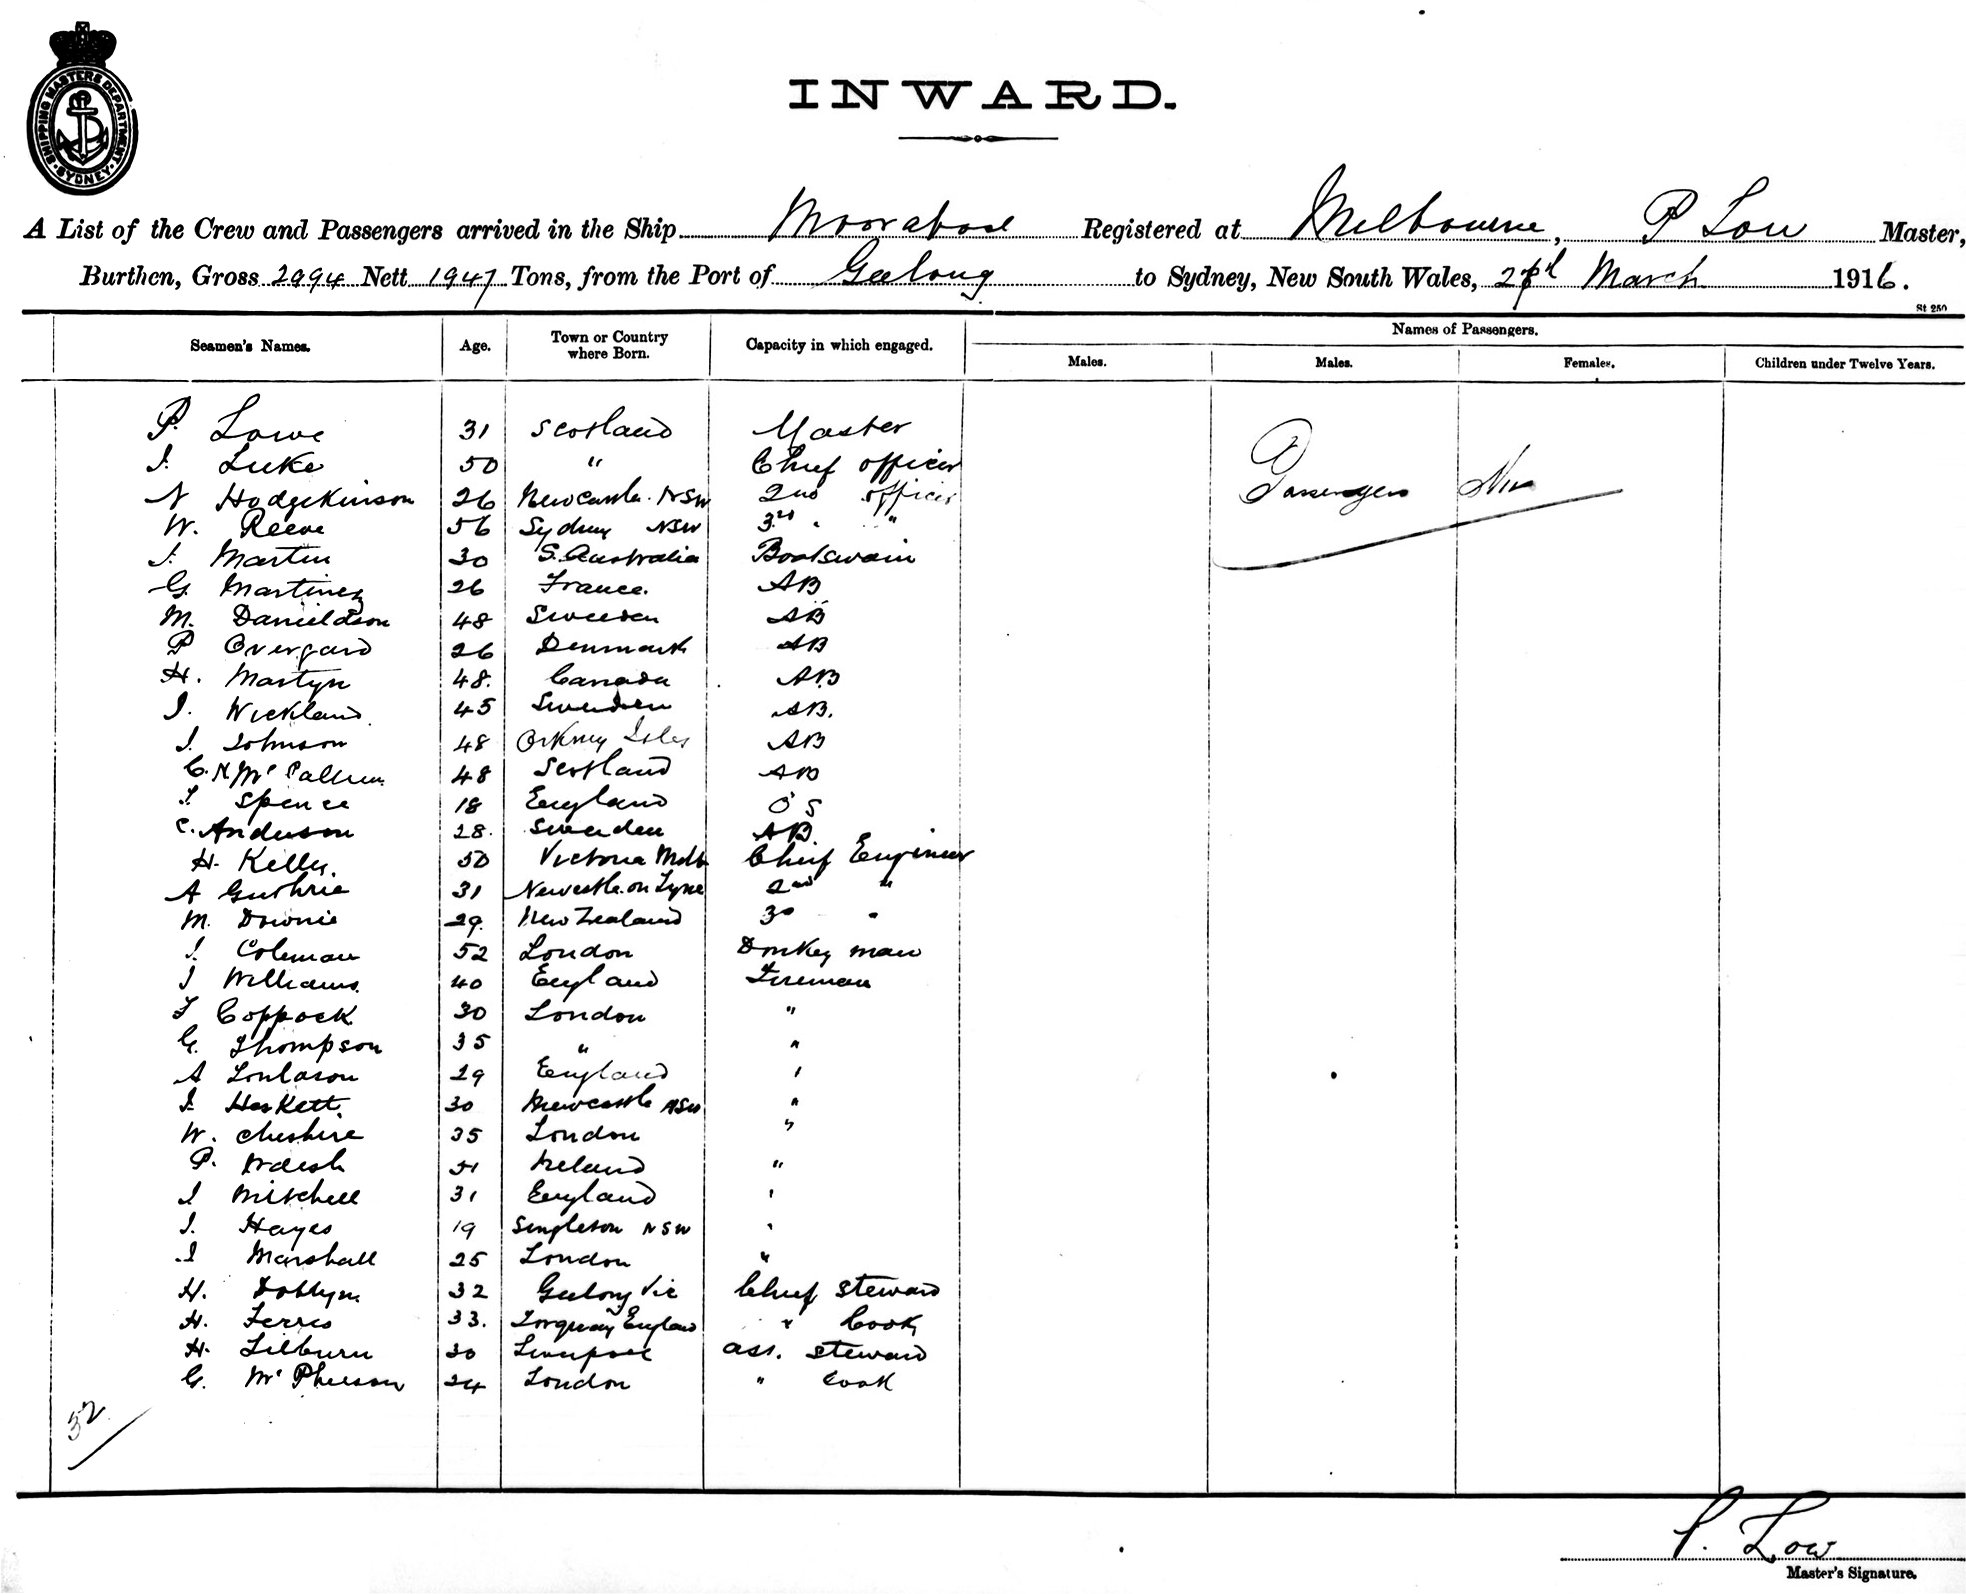 SHIPPING MASTERS DEPARTMENT
SYDNEY
INWARD.
A List of the Crew and Passengers arrived in the Ship Moorabool Registered at Melbourne, P Low Master,
Burthen, Gross 2994 Nett 1947 Tons, from the Port of Geelong to Sydney, New South Wales, March 1916.
St 250
Names of Passengers.
Seamen's Names. Age. Town or Country where Born. Capacity in which engaged. Males. Males. Females. Children under Twelve Years.
P. Lowe 31 Scotland Master
J. Luke 50 " Chief officer
N Hodgekinson 26 Newcastle. NSW 2nd officer
Passengers Nil
W. Reeve 56 Sydney NSW 3rd " "
J. Martin 30 S. Australia Boatswain
G. Martinez 26 France. AB
M. Danieldson 48 Sweeden AB
P Overgard 26 Denmark AB
H. Martyn 48. Canada AB
J. Wickland. 45 Sweeden AB.
J. Johnson 48 Orkney Isles AB
C. N 48 Scotland AB
J. Spence 18 England O S
C. Anderson 28. Sweeden AB.
H. Kelly. 50 Victoria Melb Chief Engineer
A Guthrie 31 Newcastle on Tyne 2nd "
M. Downie 29. New Zealand 3rd "
J. Coleman 52 London Donkey man
J Williams. 40 England Fireman
F Coppock 30 London "
G. Thompson 35 " "
A 29 England "
J. Heskett. 30 Newcastle NSW "
W. Cheshire 35 London "
P. Walsh 51 Ireland "
J Mitchell 31 England "
J. Hayes 19 Singleton NSW "
J Marshall 25 London "
H. Dobbyn 32 Geelong Vic Chief Steward
H. Ferris 33. Torquay England " Cook
H. Lilburn 30 Liverpool ass. Steward
G. McPherson 24 London " Cook
32
P. Low
Master's Signature.